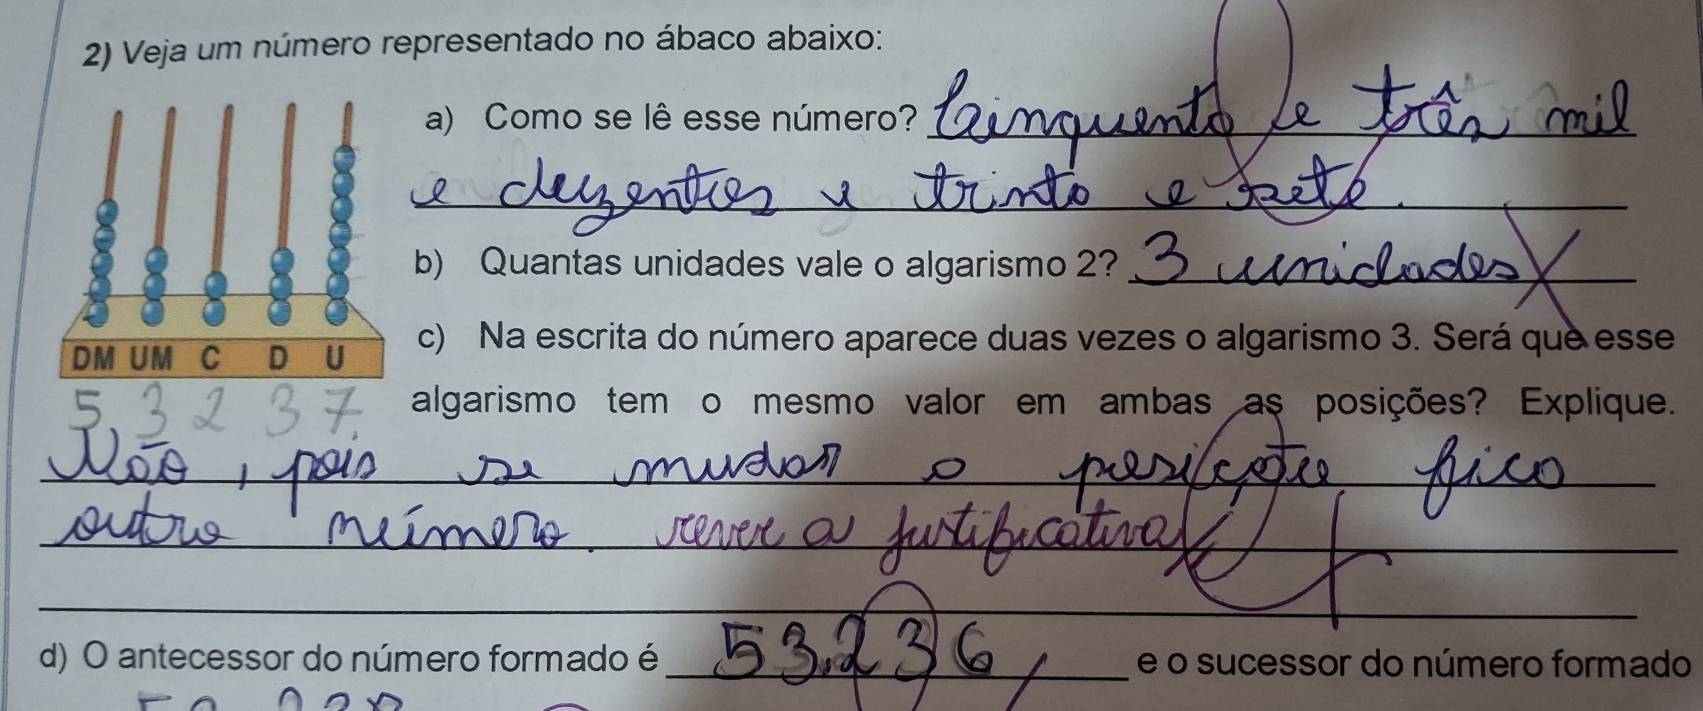 2) Veja um número representado no ábaco abaixo:
a) Como se lê esse número? Cinquenta e três mil
e duzentos e trinta e sete.
b) Quantas unidades vale o algarismo 2? 3 unidades
c) Na escrita do número aparece duas vezes o algarismo 3. Será que esse
DM UM C D U
algarismo tem o mesmo valor em ambas as posições? Explique.
5 3 2 3 7
Não, pois se mudar o posição fica
outro número. rever a justificativa
d) O antecessor do número formado é 53.236 e o sucessor do número formado